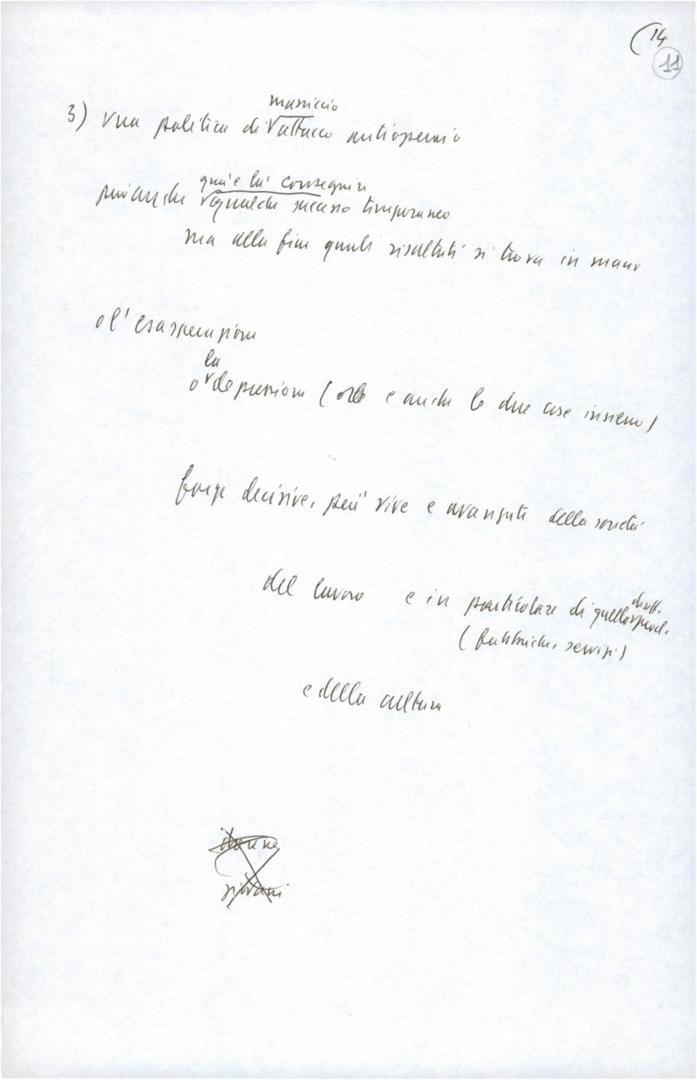 (14
11
massiccio
3) una politica di attacco antioperaio
qua e là conseguire
può anche qualche successo temporaneo
ma alla fine quali risultati si trova in mano
o l'esasperazione
la
o depressione ( e anche le due cose insieme)
forze decisive, più vive e avanzate della società
dirett.
del lavoro e in particolare di quello prod.
(fabbriche, servizi)
e della cultura
donne
giovani